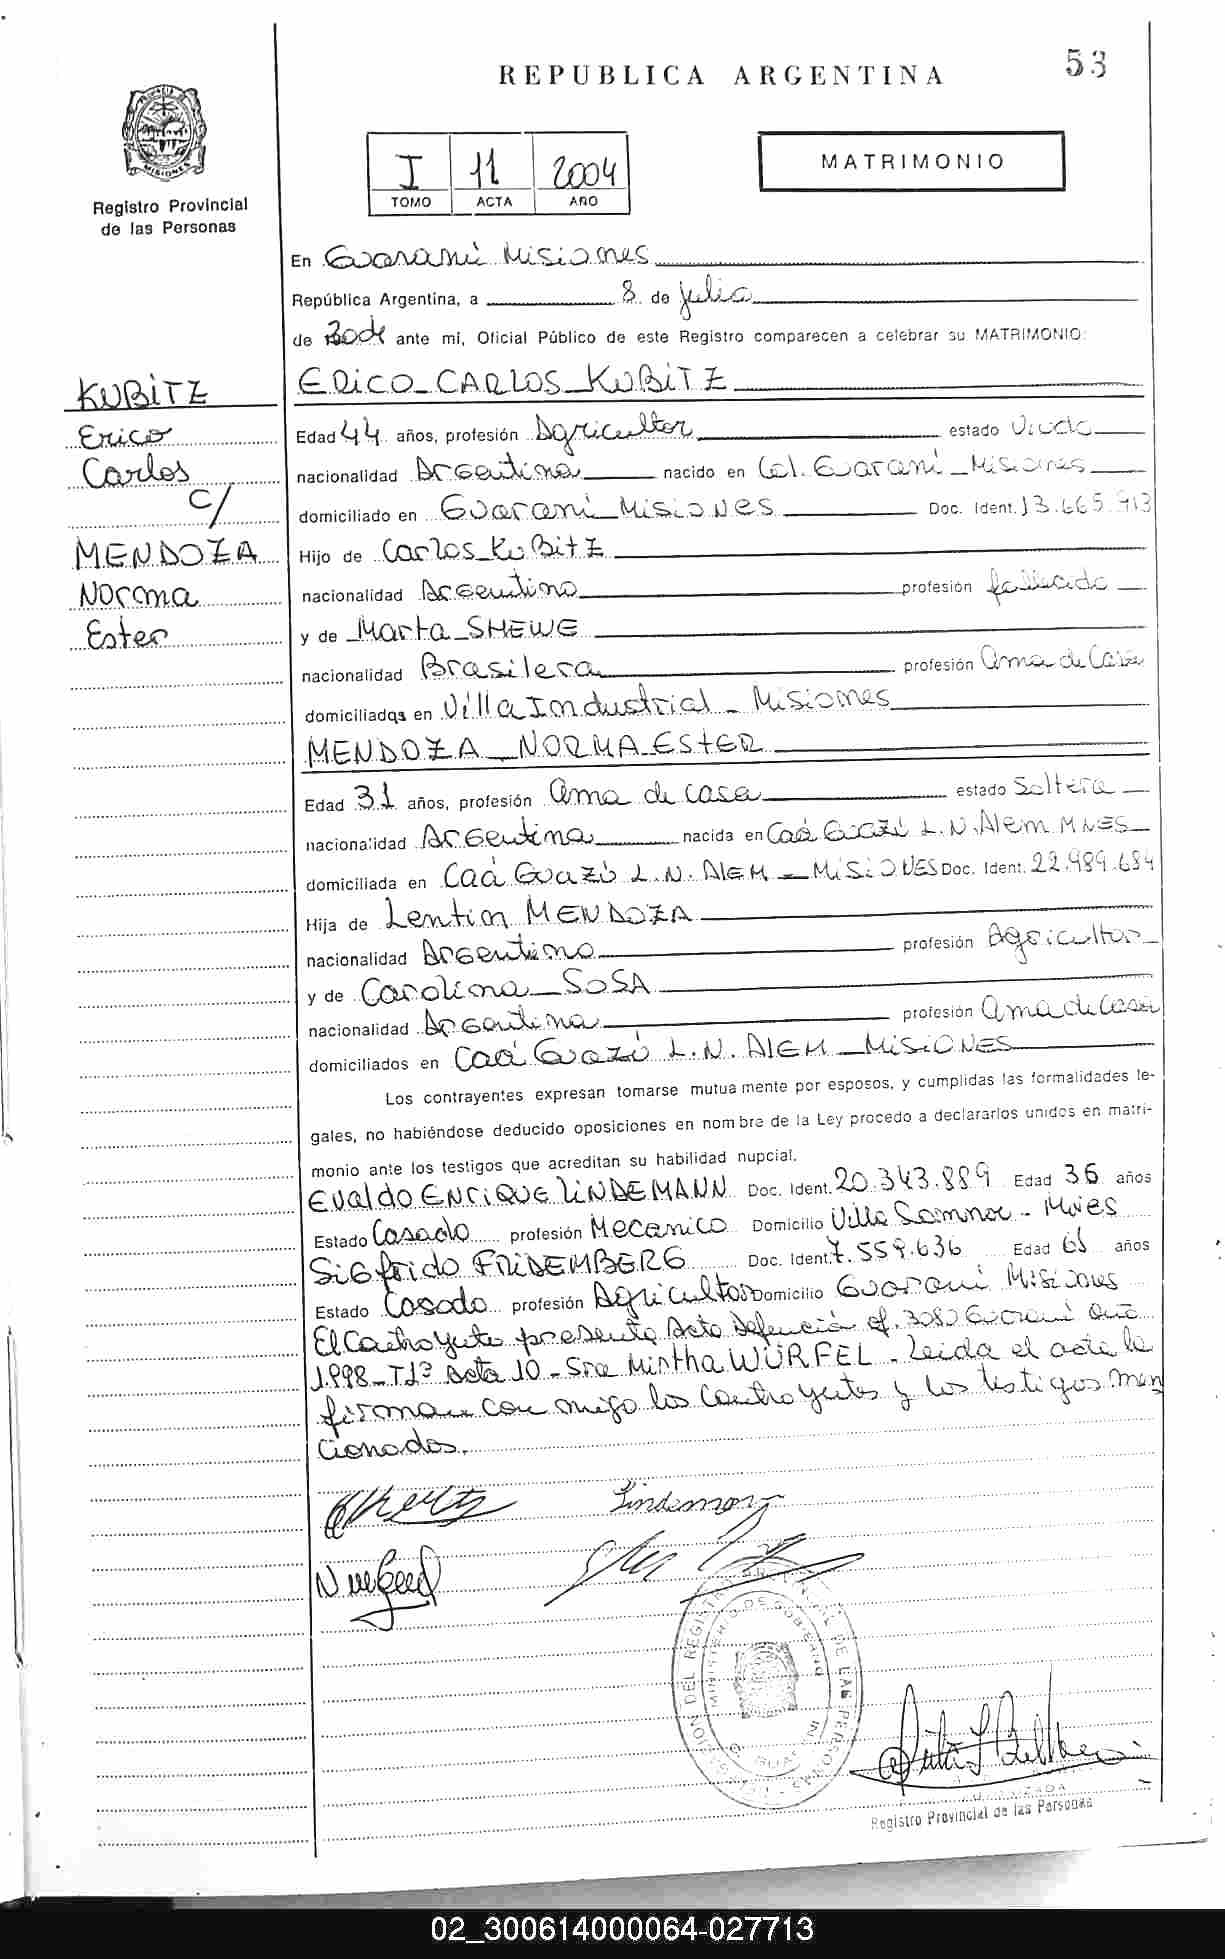 53
REPUBLICA ARGENTINA
MISIONES
Registro Provincial
de las Personas
I 11 2004
TOMO ACTA AÑO
MATRIMONIO
En Guaraní Misiones
República Argentina, a 8 de julio
de 2004 ante mí, Oficial Público de este Registro comparecen a celebrar su MATRIMONIO:
KUBITZ
Erico
Carlos
c/
MENDOZA
Norma
Ester
ERICO CARLOS KUBITZ
Edad 44 años, profesión Agricultor estado Viudo
nacionalidad Argentina nacido en Col. Guaraní - Misiones
domiciliado en Guaraní Misiones Doc. Ident. 13.665.913
Hijo de Carlos KuBitZ
nacionalidad Argentino profesión fallecido
y de Marta SHEWE
nacionalidad Brasilera profesión Ama de Casa
domiciliados en Villa Industrial - Misiones
MENDOZA NORMA ESTER
Edad 31 años, profesión Ama de casa estado Soltera
nacionalidad Argentina nacida en Caá Guazú L.N. Alem Mnes
domiciliada en Caá Guazú L.N. Alem - Misiones Doc. Ident. 22.989.684
Hija de MENDOZA
nacionalidad Argentino profesión Agricultor
y de Carolina SOSA
nacionalidad Argentina profesión Ama de Casa
domiciliados en Caá Guazú L.N. Alem - Misiones
Los contrayentes expresan tomarse mutuamente por esposos, y cumplidas las formalidades le-
gales, no habiéndose deducido oposiciones en nombre de la Ley procedo a declararlos unidos en matri-
monio ante los testigos que acreditan su habilidad nupcial.
Evaldo Enrique LINDEMANN Doc. Ident. 20.343.889 Edad 36 años
Estado Casado profesión Mecanico Domicilio Villa - Mnes
Sigfrido FRIDEMBERG Doc. Ident. 7.559.636 Edad 65 años
Estado Casado profesión Agricultor Domicilio Guaraní Misiones
El Contrayente presenta Acta Defunción of. 3080 Guaraní año
1.998 - T1º Acta 10 - Sra Mirtha WÜRFEL - Leida el acta la
firman con migo los Contrayentes y los testigos men
cionados.
Lindemann
MINISTERIO DE GOBIERNO
Registro Provincial de las Personas
02_300614000064-027713